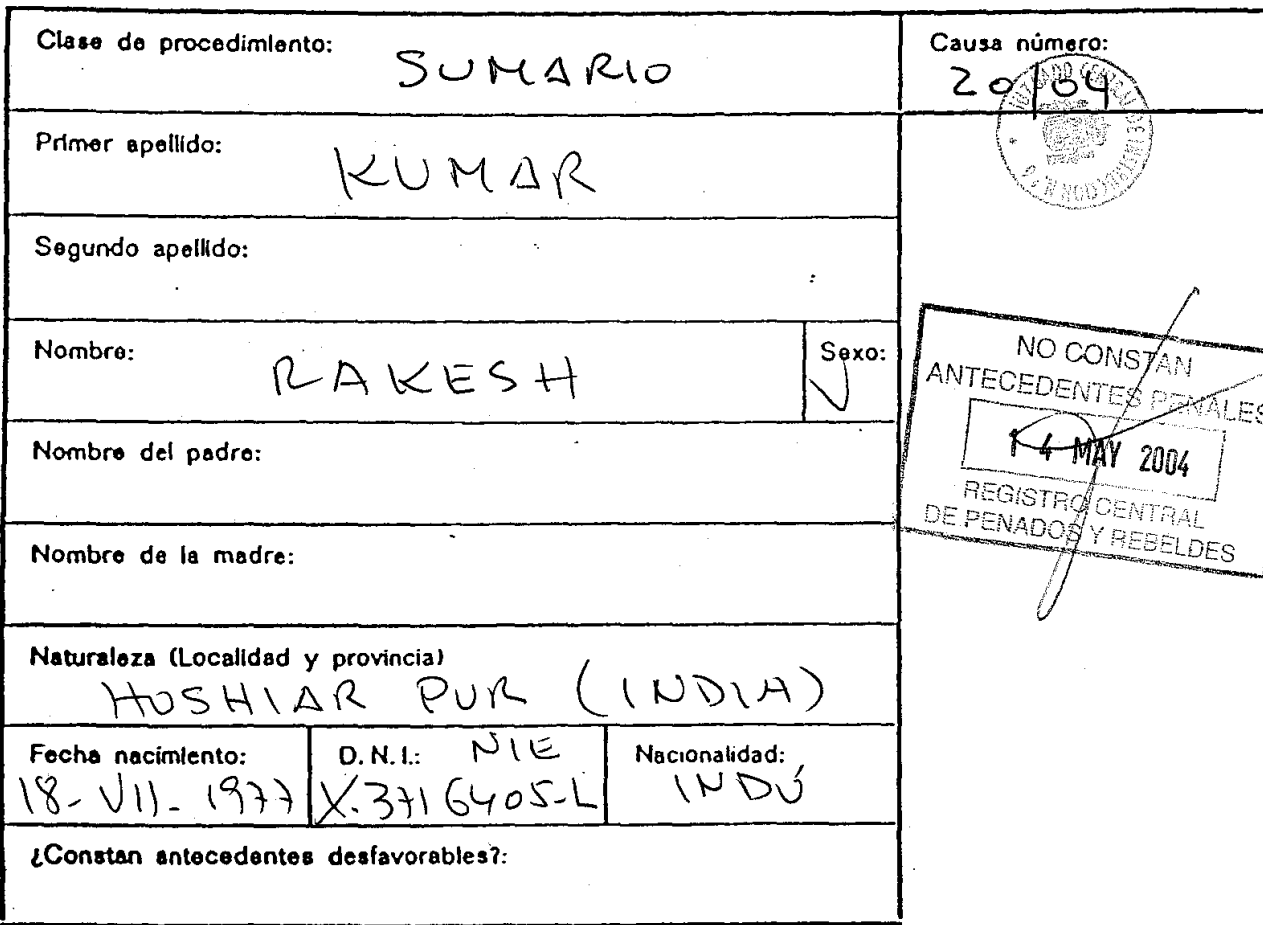 Clase de procedimiento:
SUMARIO
Causa número:
20/04
JUZGADO CENTRAL DE INSTRUCCION
Primer apellido:
KUMAR
Segundo apellido:
Nombre:
RAKESH
Sexo:
V
NO CONSTAN
ANTECEDENTES PENALES
14 MAY 2004
REGISTRO CENTRAL
DE PENADOS Y REBELDES
Nombre del padre:
Nombre de la madre:
Naturaleza (Localidad y provincia)
HOSHIAR PUR (INDIA)
Fecha nacimiento:
18-VII-1977
D.N.I.: NIE
X.3716405-L
Nacionalidad:
INDÚ
¿Constan antecedentes desfavorables?: